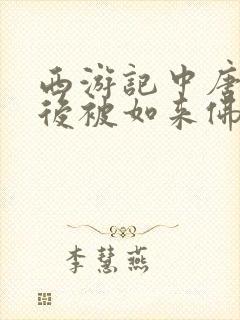 西游記中唐
後被如来佛
李慧燕